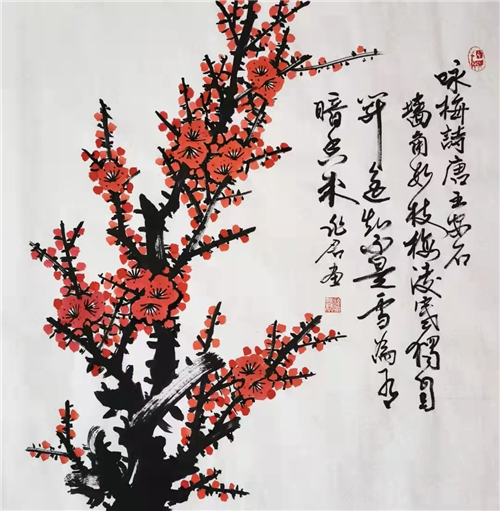 咏梅詩唐王安石
墙角数枝梅凌寒獨自
开遥知不是雪為有
暗香来
君画